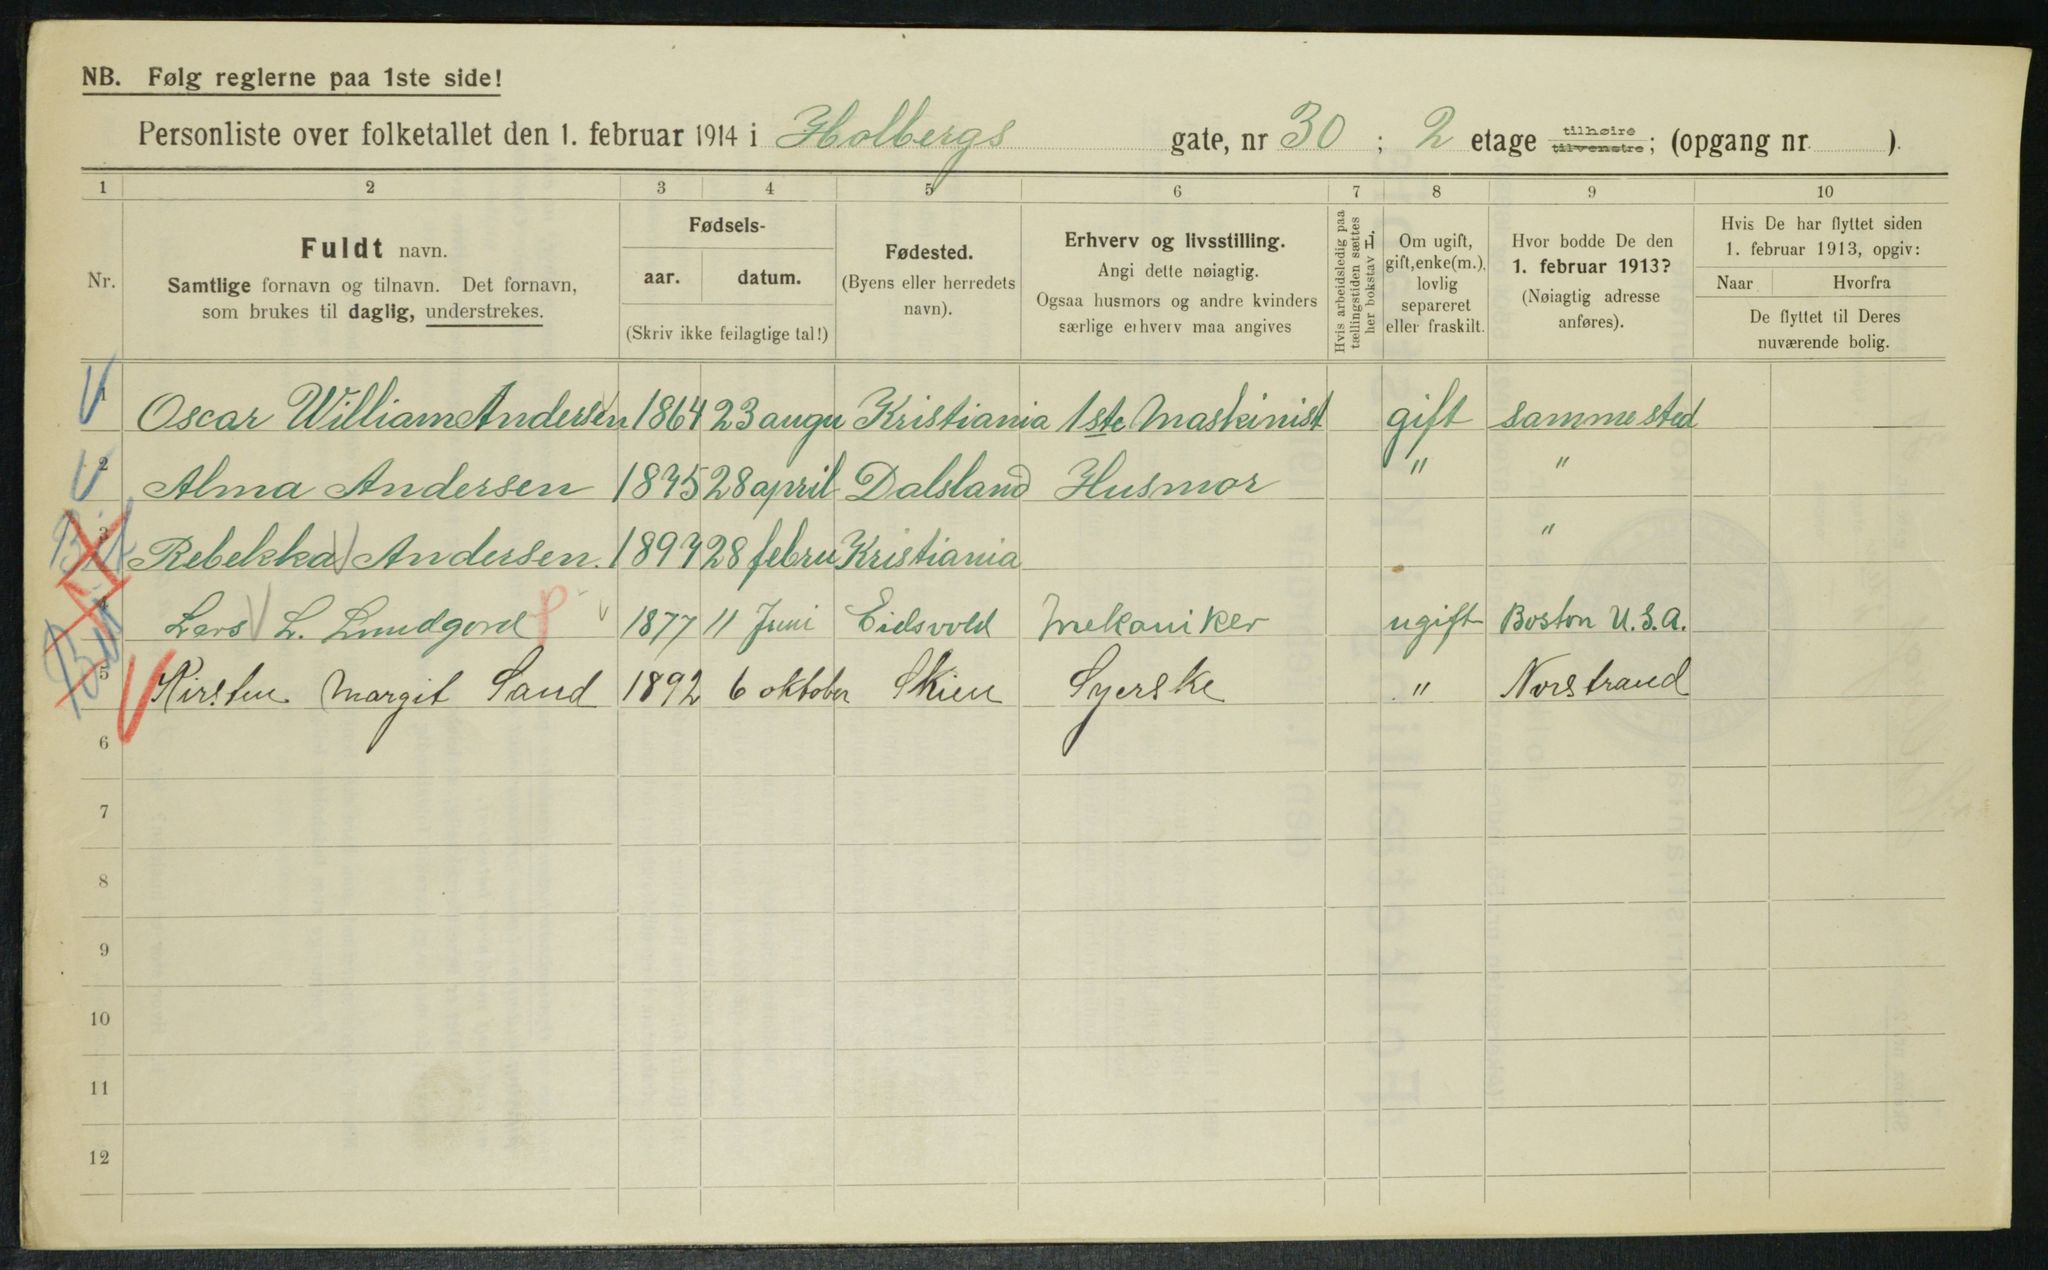 NB. Følg reglerne paa 1ste side!
Personliste over folketallet den 1. februar 1914 i Holbergs gate, nr 30 ; 2 etage tilhøire tilvenstre; (opgang nr. ).
1 2 3 4 5 6 7 8 9 10
Nr.
Fuldt navn.
Samtlige fornavn og tilnavn. Det fornavn,
som brukes til daglig, understrekes.
Fødsels-
aar. datum.
(Skriv ikke feilagtige tal!)
Fødested.
(Byens eller herredets
navn).
Erhverv og livsstilling.
Angi dette nøiagtig.
Ogsaa husmors og andre kvinders
særlige erhverv maa angives
Hvis arbeidsledig paa
tællingstiden sættes
her bokstav L.
Om ugift,
gift, enke(m.),
lovlig
separeret
eller fraskilt.
Hvor bodde De den
1. februar 1913?
(Nøiagtig adresse
anføres).
Hvis De har flyttet siden
1. februar 1913, opgiv:
Naar Hvorfra
De flyttet til Deres
nuværende bolig.
1 Oscar William Andersen 1864 23 augu Kristiania 1ste Maskinist gift sammested
2 Alma Andersen 28 april Dalsland Husmor " "
3 Rebekka Andersen. 28 febru Kristiania "
4 Lars L. 1877 11 Juni Eidsvold Mekaniker ugift Boston U.S.A.
5 Kirsten Margit Sand 1892 6 oktober Skien Syerske " Norstrand
6
7
8
9
10
11
12